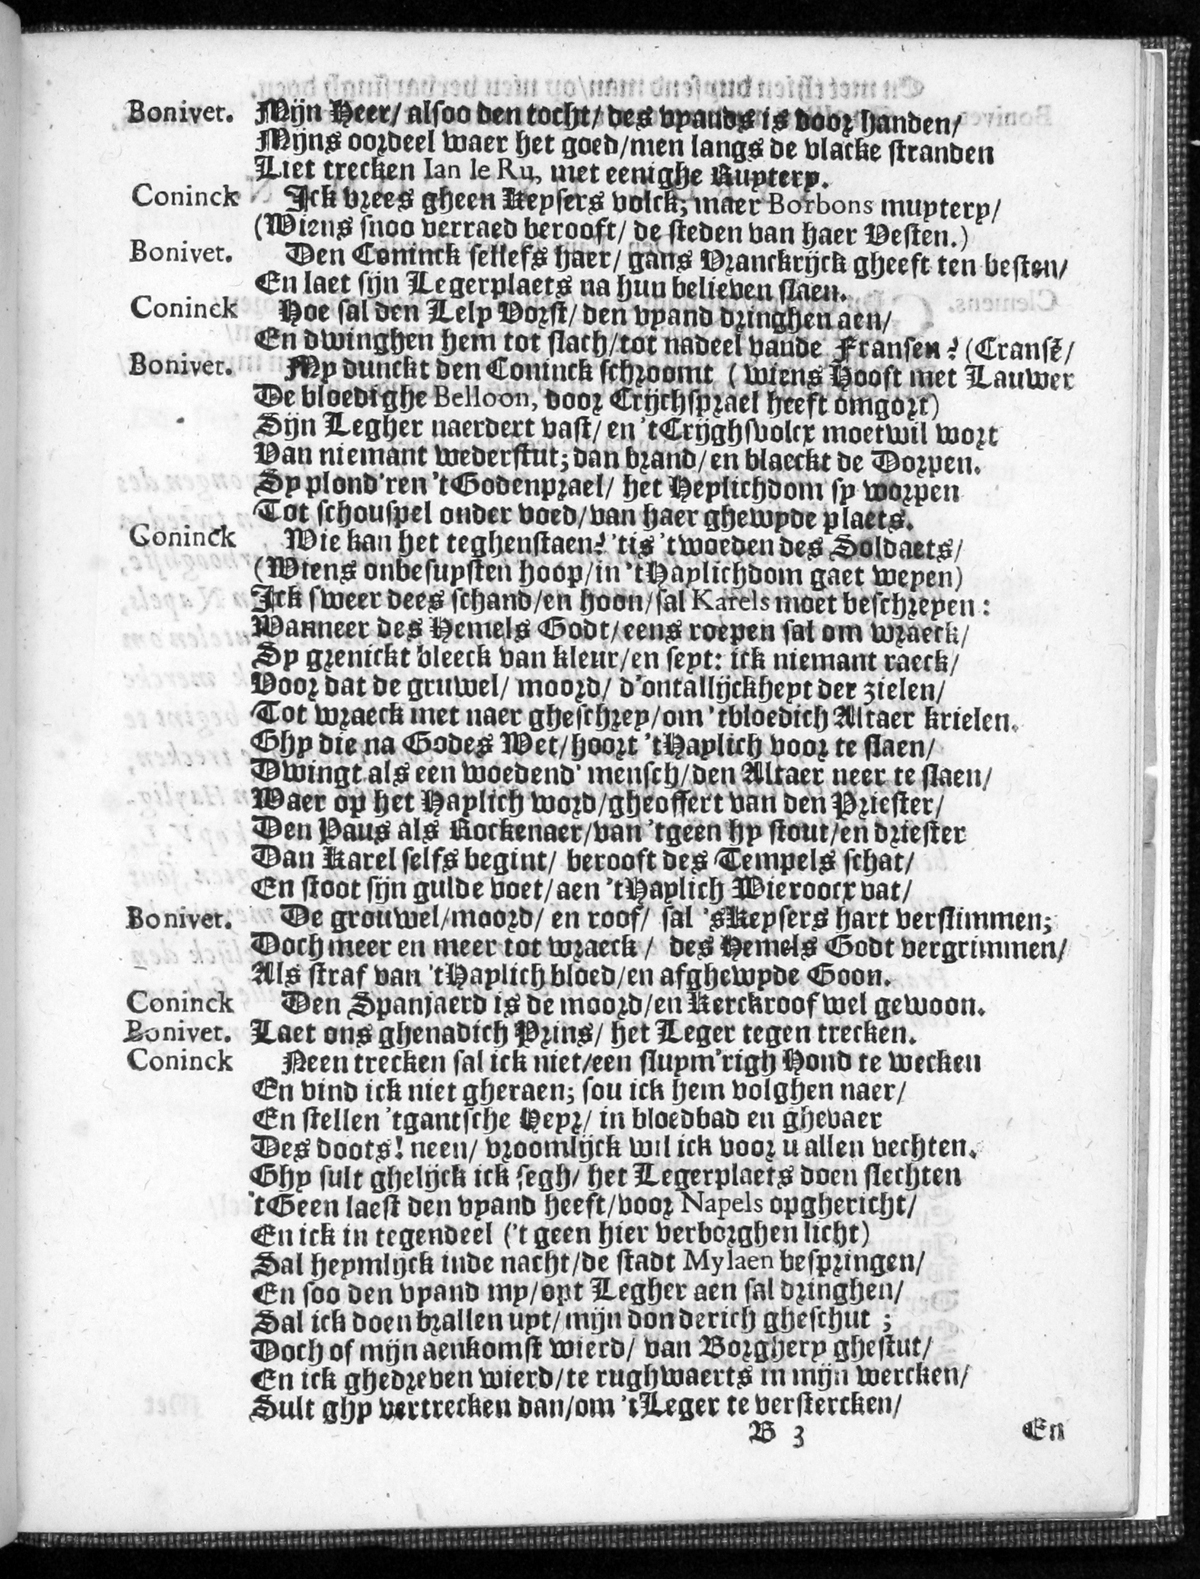 Bonivet. Mijn Heer/ alsoo den tocht/ des vyands is door handen/
Mijns oordeel waer het goed/men langs de vlacke stranden
Liet trecken Ian le Ru, met eenighe Ruytery.
Coninck Ick vrees gheen Keysers volck; maer Borbons muytery/
(Wiens snoo verraed berooft/ de steden van haer Vesten.)
Bonivet. Den Coninck sellefs haer/ gans Vranckrijck gheeft ten besten/
En laet sijn Legerplaets na huu believen slaen.
Coninck Hoe sal den Lely Vorst/ den vyand dringhen aen/
En dwinghen hem tot slach/tot nadeel vande Fransen? (Cransẽ/
Bonivet. My dunckt den Coninck schroomt (wiens Hooft met Lauwer
De bloedighe Belloon, door Crijchsprael heeft omgort)
Sijn Legher naerdert vast/ en 't Crijghsvolcx moetwil wort
Van niemant wederstut; dan brand/en blaeckt de Dorpen.
Sy plond'ren 't Godenprael/ het Heylichdom sy worpen
Tot schouspel onder voed/van haer ghewyde plaets.
Goninck Wie kan het teghenstaen? 'tis 't woeden des Soldaets/
(Wiens onbesuysten hoop/in 't Haylichdom gaet weyen)
Ick sweer dees schand/en hoon/sal Karels moet beschreyen:
Wanneer des Hemels Godt/eens roepen sal om wraeck/
Sy grenickt bleeck van kleur/en seyt: ick niemant raeck/
Voor dat de gruwel/ moord/ d'ontallijckheyt der zielen/
Tot wraeck met naer gheschrey/om 'tbloedich Altaer krielen.
Ghy die na Godes Wet/hoort 't Haylich voor te staen/
Dwingt als een woedend' mensch/den Altaer neer te slaen/
Waer op het Haylich word/gheoffert van den Priester/
Den Paus als Rockenaer/van 'tgeen hy stout/en driester
Dan Karel selfs begint/ berooft des Tempels schat/
En stoot sijn gulde voet/aen 't Haylich Wieroocx vat/
Bonivet. De grouwel/moord/ en roof/ sal 's Keysers hart verstimmen;
Doch meer en meer tot wraeck/ des Hemels Godt vergrimmen/
Als straf van 't Haylich bloed/en afghewyde Goon.
Coninck Den Spanjaerd is de moord/en Kerckroof wel gewoon.
Bonivet. Laet ons ghenadich Prins/ het Leger tegen trecken.
Coninck Neen trecken sal ick niet/een sluym'righ Hond te wecken
En vind ick niet gheraen; sou ick hem volghen naer/
En stellen 'tgantsche Heyr/ in bloedbad en ghevaer
Des doots! neen/ vroomlijck wil ick voor u allen vechten.
Ghy sult ghelijck ick segh/ het Legerplaets doen slechten
't Geen laest den vyand heeft/voor Napels opghericht/
En ick in tegendeel ('t geen hier verborghen licht)
Sal heymlijck inde nacht/de stadt Mylaen bespringen/
En soo den vyand my/opt Legher aen sal dringhen/
Sal ick doen brallen uyt/mijn donderich gheschut;
Doch of mijn aenkomst wierd/ van Borghery ghestut/
En ick ghedreven wierd/te rughwaerts in mijn wercken/
Sult ghy vertrecken dan/om 't Leger te verstercken/
B 3 En